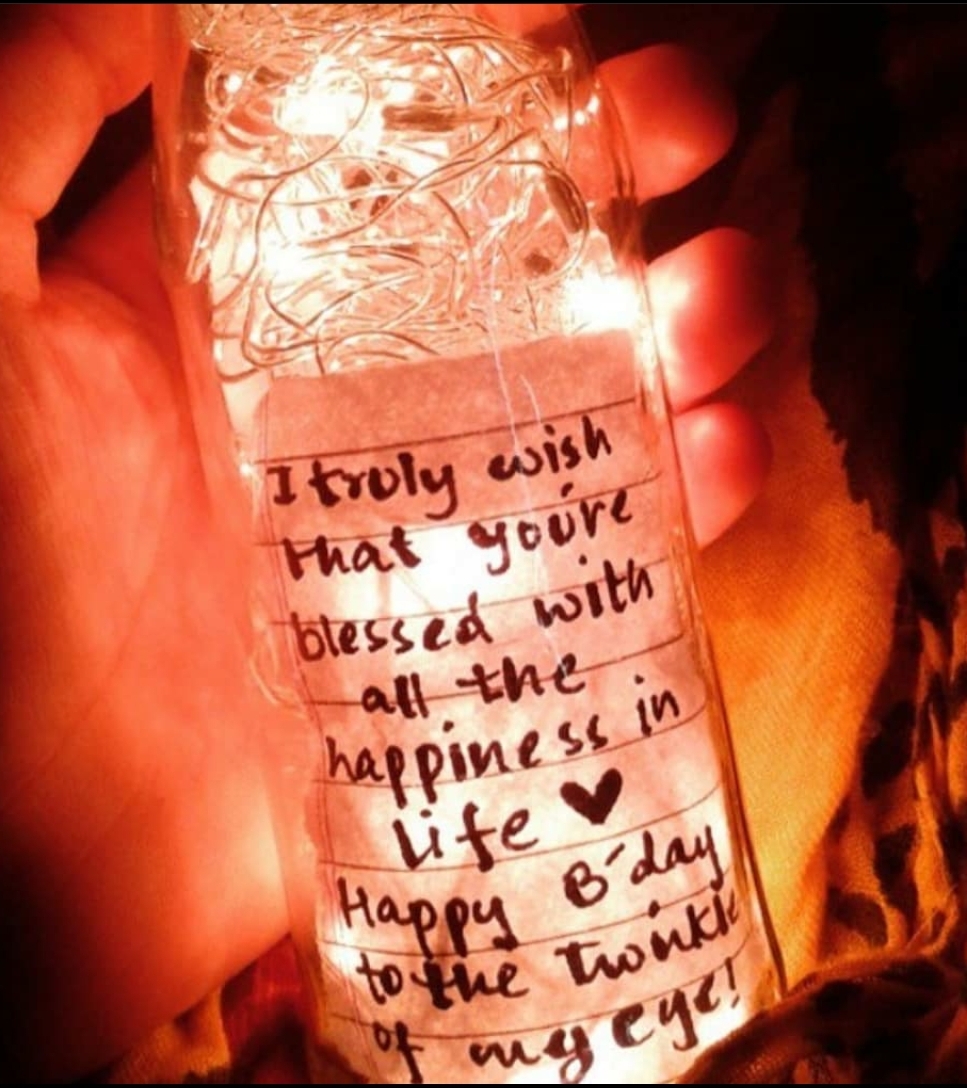 I truly wish
that you're
blessed with
all the
happiness in
life ♥
Happy B'day
to the Twinkle
of my eye!